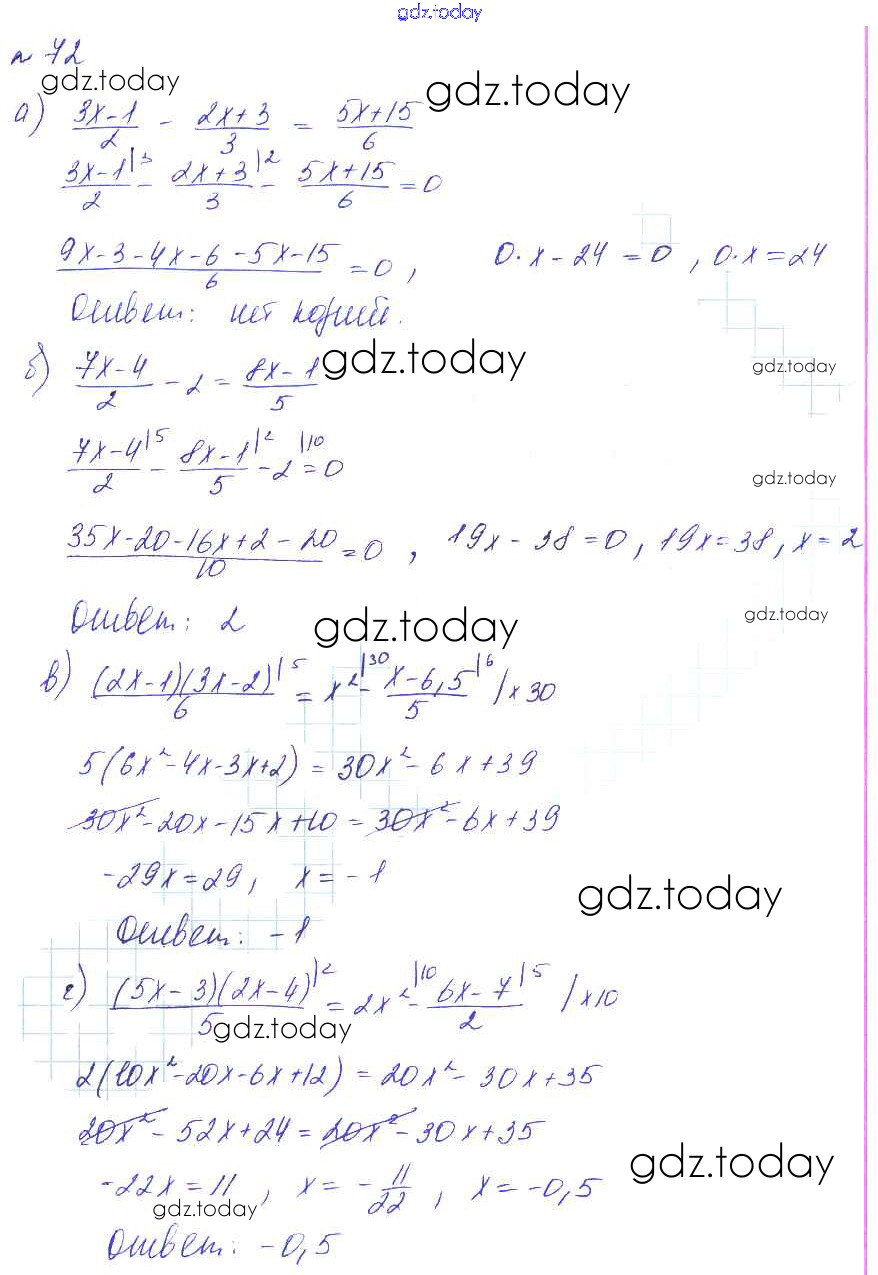 gdz.today
№ 72
gdz.today
gdz.today
а) (3x-1)/2 - (2x+3)/3 = (5x+15)/6
(3x-1|3)/2 - (2x+3|2)/3 - (5x+15)/6 = 0
(9x-3-4x-6-5x-15)/6 = 0, 0·x-24 = 0, 0·x = 24
Ответ: нет корней.
gdz.today
gdz.today
б) (7x-4)/2 - 2 = (8x-1)/5
(7x-4|5)/2 - (8x-1|2)/5 - 2|10 = 0
gdz.today
(35x-20-16x+2-20)/10 = 0, 19x-38=0, 19x=38, x=2
Ответ: 2
gdz.today
gdz.today
в) ((2x-1)(3x-2)|5)/6 = x²|30 - (x-6,5|6)/5 /×30
5(6x²-4x-3x+2) = 30x²-6x+39
30x²-20x-15x+10 = 30x²-6x+39
-29x=29, x=-1
gdz.today
Ответ: -1
г) ((5x-3)(2x-4)|2)/5 = 2x²|10 - (6x-7|5)/2 /×10
gdz.today
2(10x²-20x-6x+12) = 20x²-30x+35
20x²-52x+24 = 20x²-30x+35
gdz.today
-22x=11, x=-11/22, x=-0,5
gdz.today
Ответ: -0,5